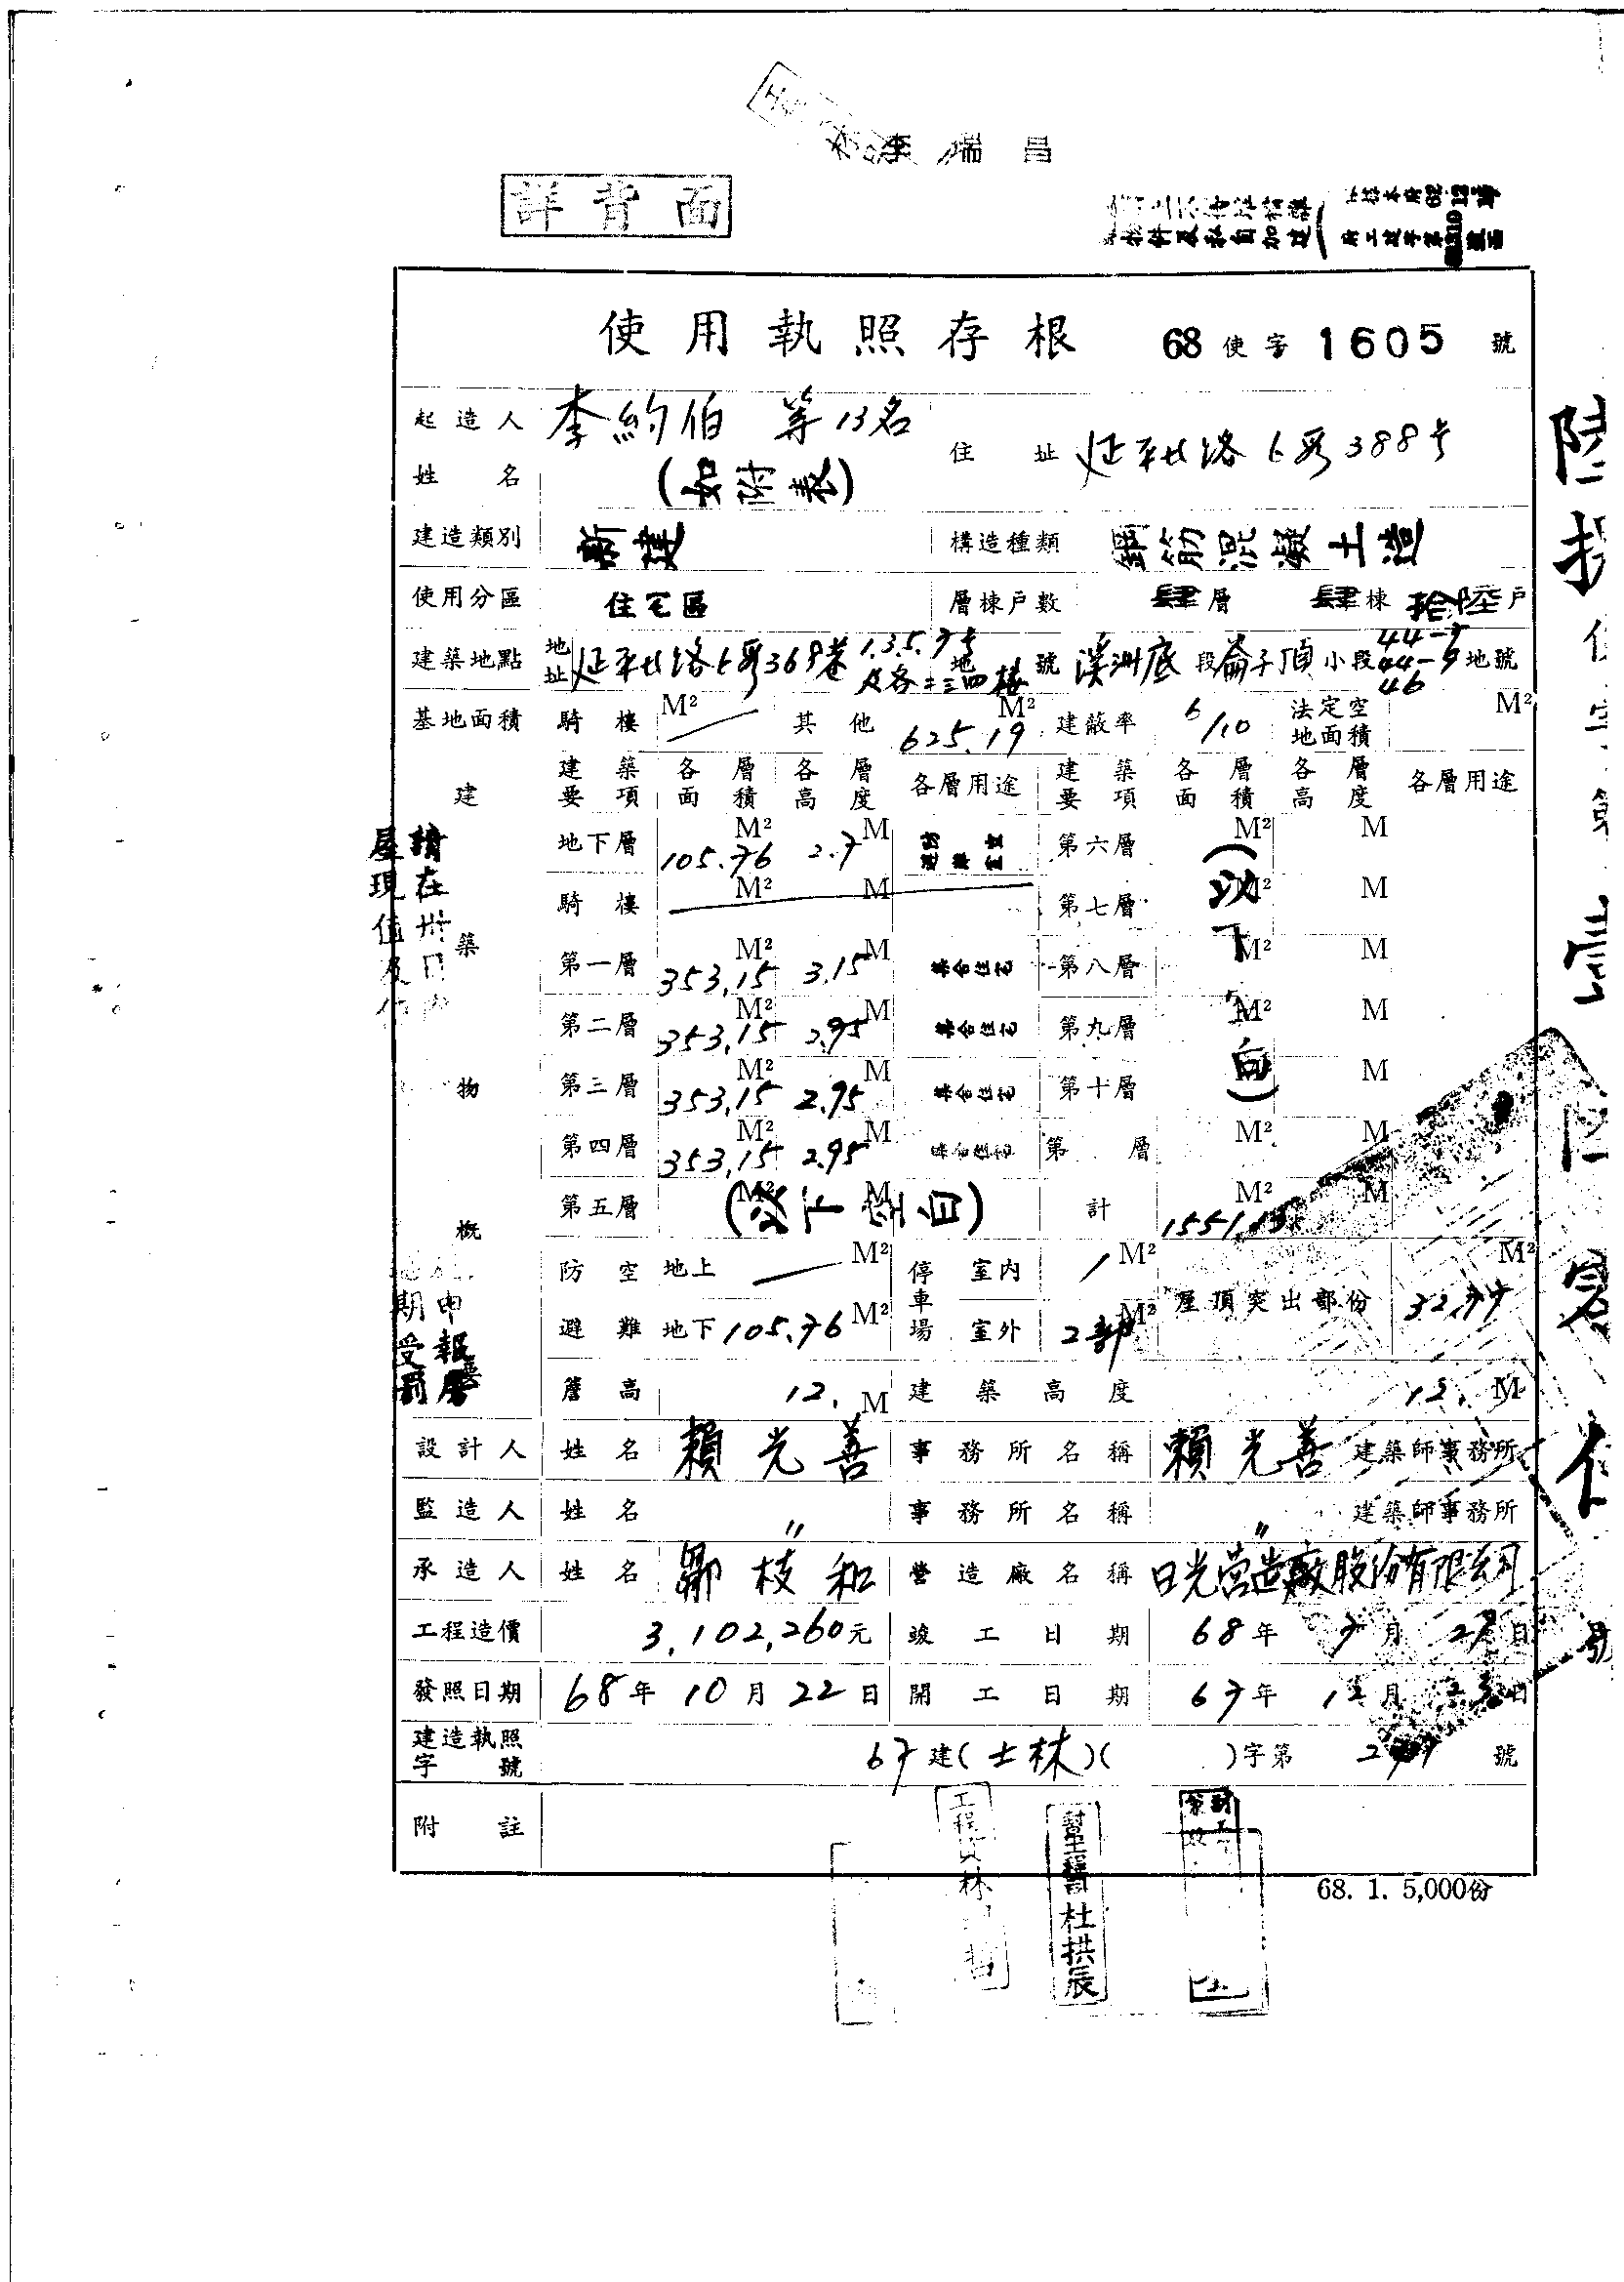 李瑞昌
詳背面
使用執照存根 68使字1605號
起造人姓名 李約伯 等13名 (如附表) 住址 延平北路6段388号
建造類別 新建 構造種類 鋼筋混凝土造
使用分區 住宅區 層棟戶數 肆層 肆棟 拾陸戶
建築地點 地址 延平北路6段369巷1.3.5.7号及各二三四樓 地號 溪洲底段崙子頂小段 46地號
基地面積 騎樓 M² 其他 625.19 M² 建蔽率 6/10 法定空地面積 M²
建築物概
建築要項 各層面積 各層高度 各層用途 建築要項 各層面積 各層高度 各層用途
地下層 105.76 M² 2.7 M 第六層 M² M
騎樓 M² M 第七層 M² M
第一層 353.15 M² 3.15 M 集合住宅 第八層 M² M
第二層 353.15 M² 2.95 M 集合住宅 第九層 M² M
第三層 353.15 M² 2.95 M 集合住宅 第十層 M² M
第四層 353.15 M² 2.95 M 集合住宅 第 層 M² M
第五層 (以下空白) M² M 計 M² M
防空避難 地上 M² 停車場 室內 M² 屋頂突出部份 M²
地下 105.76 M² 室外 2部 M²
簷高 12. M 建築高度 12. M
設計人 姓名 賴光善 事務所名稱 賴光善 建築師事務所
監造人 姓名 〃 事務所名稱 〃 建築師事務所
承造人 姓名 鄒枝和 營造廠名稱 日光營造廠股份有限公司
工程造價 3,102,260元 竣工日期 68年 月 日
發照日期 68年10月22日 開工日期 67年12月 日
建造執照字號 67建(士林)( )字第 號
附註
68. 1. 5,000份
杜拱辰